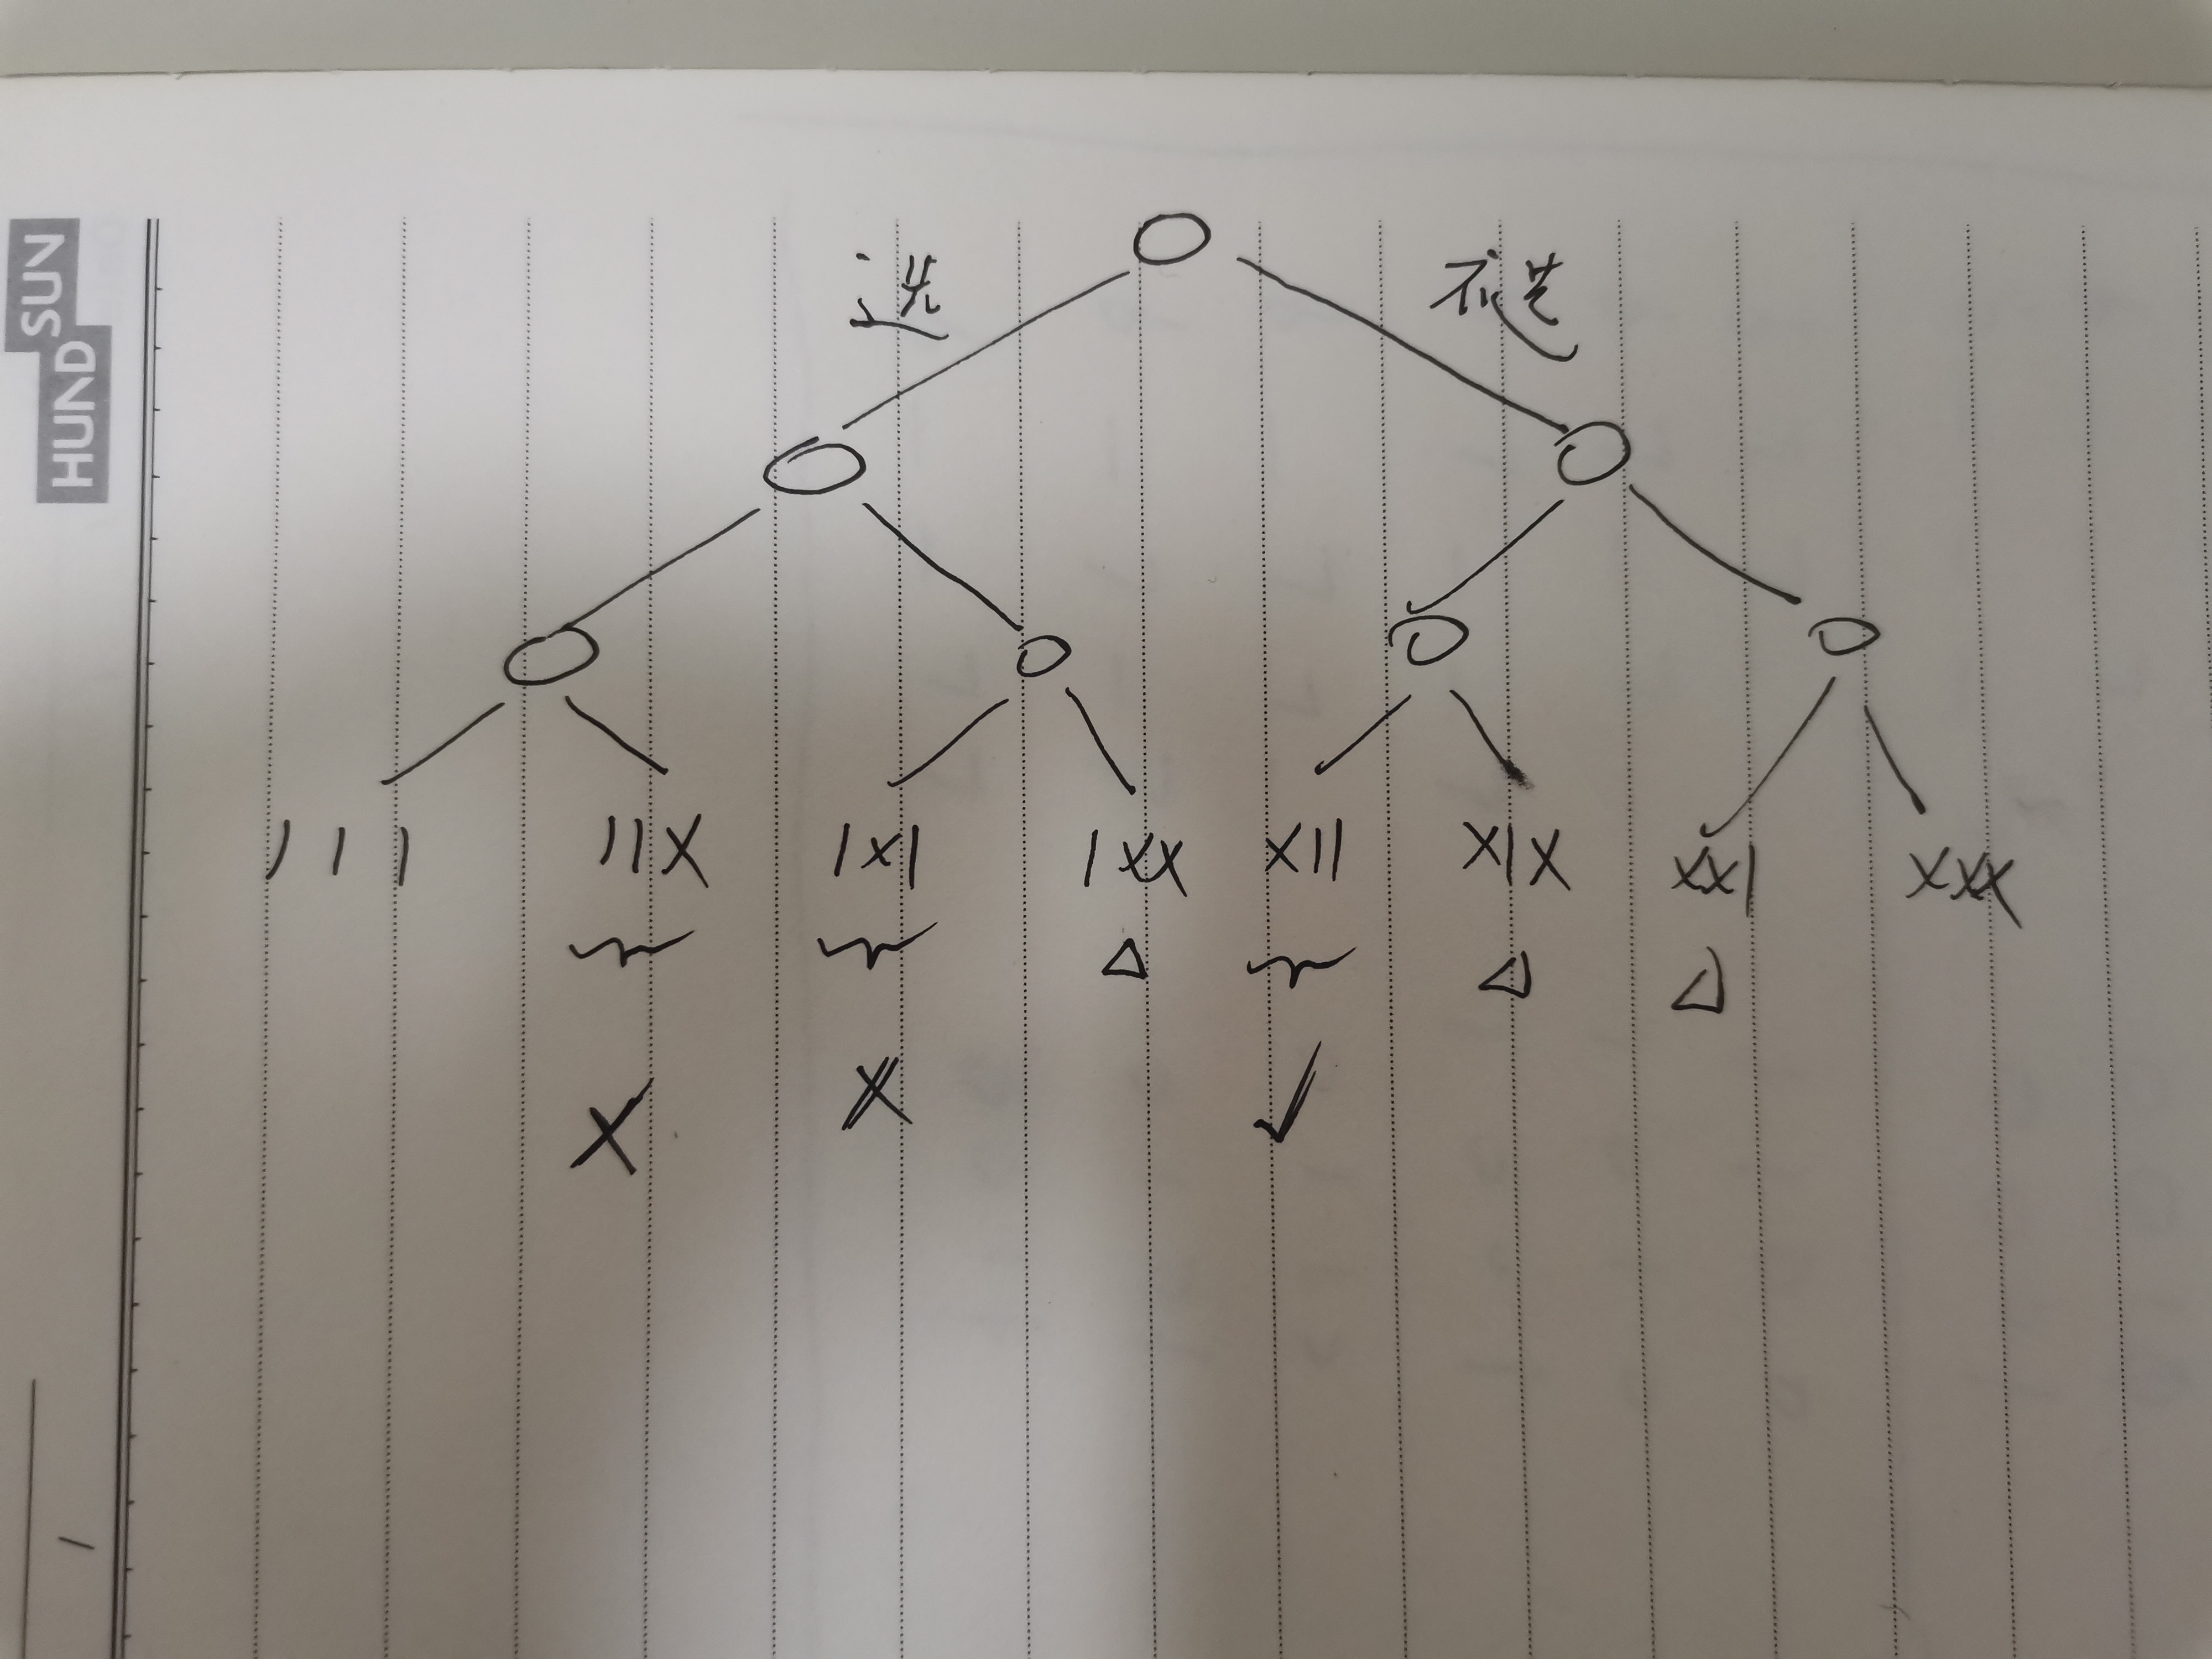 HUND SUN
选 不选
111 11X 1X1 1XX X11 X1X XX1 XXX
△ △ △
X X ✓